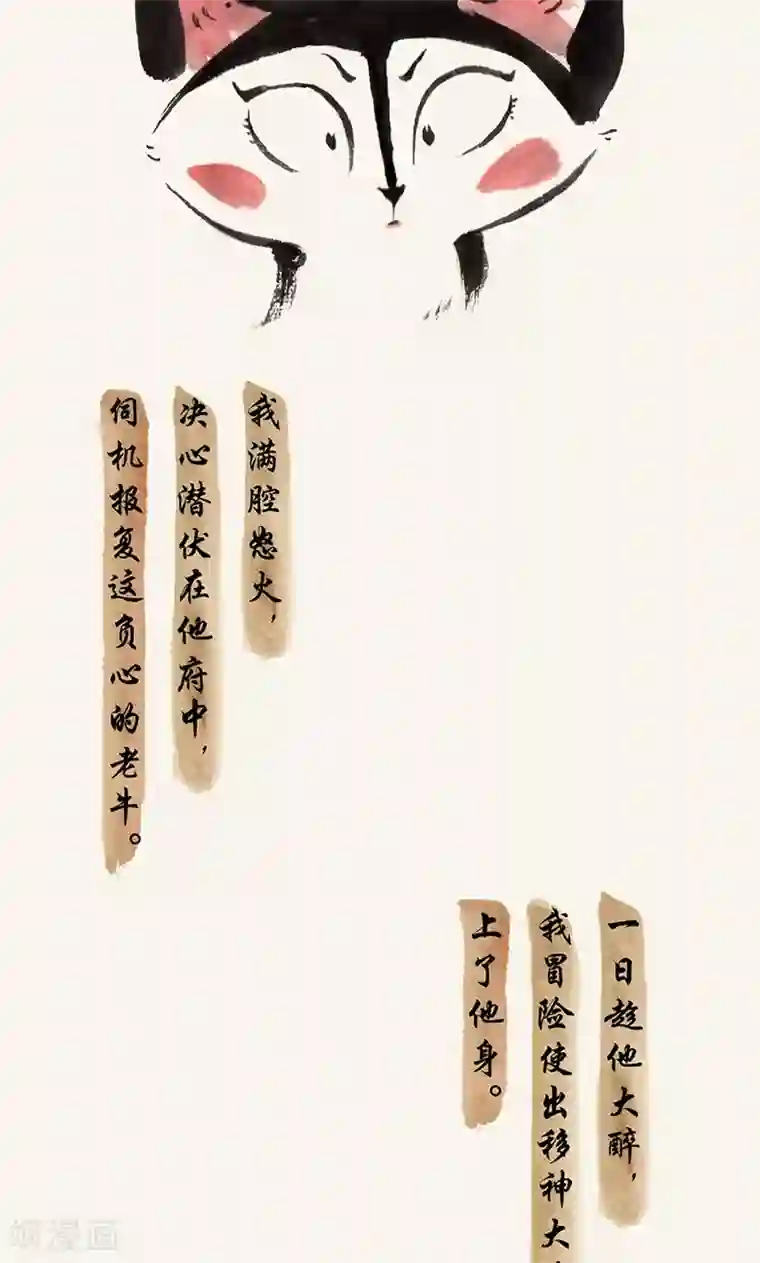 我满腔怒火,
决心潜伏在他府中,
伺机报复这负心的老牛。
一日趁他大醉,
我冒险使出移神大
上了他身。
漫画